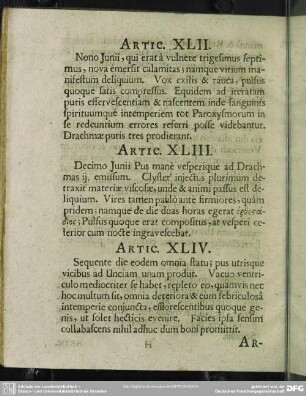 ARTIC. XLII.
Nono Junii, qui erat à vulnere trigesimus septi-
mus, nova emersit calamitas; namque vitium ma-
nifestum deliquium. Vox exilis & rauca, pulsus
quoque satis compressus. Equidem ad iteratum
puris effervescentiam & nascentem inde sanguinis
spirituumque intemperiem tot Paroxysmorum in
se redeuntium errores referri posse videbantur.
Drachmæ puris tres prodierant.
ARTIC. XLIII.
Decimo Junii Pus manè vesperique ad Drach-
mas ij. emissum. Clyster injectus plurimum de-
traxit materiæ viscosæ, unde & animi passus est de-
liquium. Vires tamen paulò ante firmiores, quàm
pridem: namque de die duas horas egerat
Pulsus quoque erat compositus, at vesperi ce-
lerior cum nocte ingravescebat.
ARTIC. XLIV.
Sequente die eodem omnia statu; pus utrisque
vicibus ad Unciam unam prodiit. Vacuo ventri-
culo mediocriter se habet, repleto eo, quamvis nec
hoc multum sit, omnia deteriora & cum febriculosâ
intemperie conjuncta, efflorescentibus quoque ge-
nis, ut solet hecticis evenire. Facies ipsa sensim
collabascens nihil adhuc dum boni promittit.
H
AR-